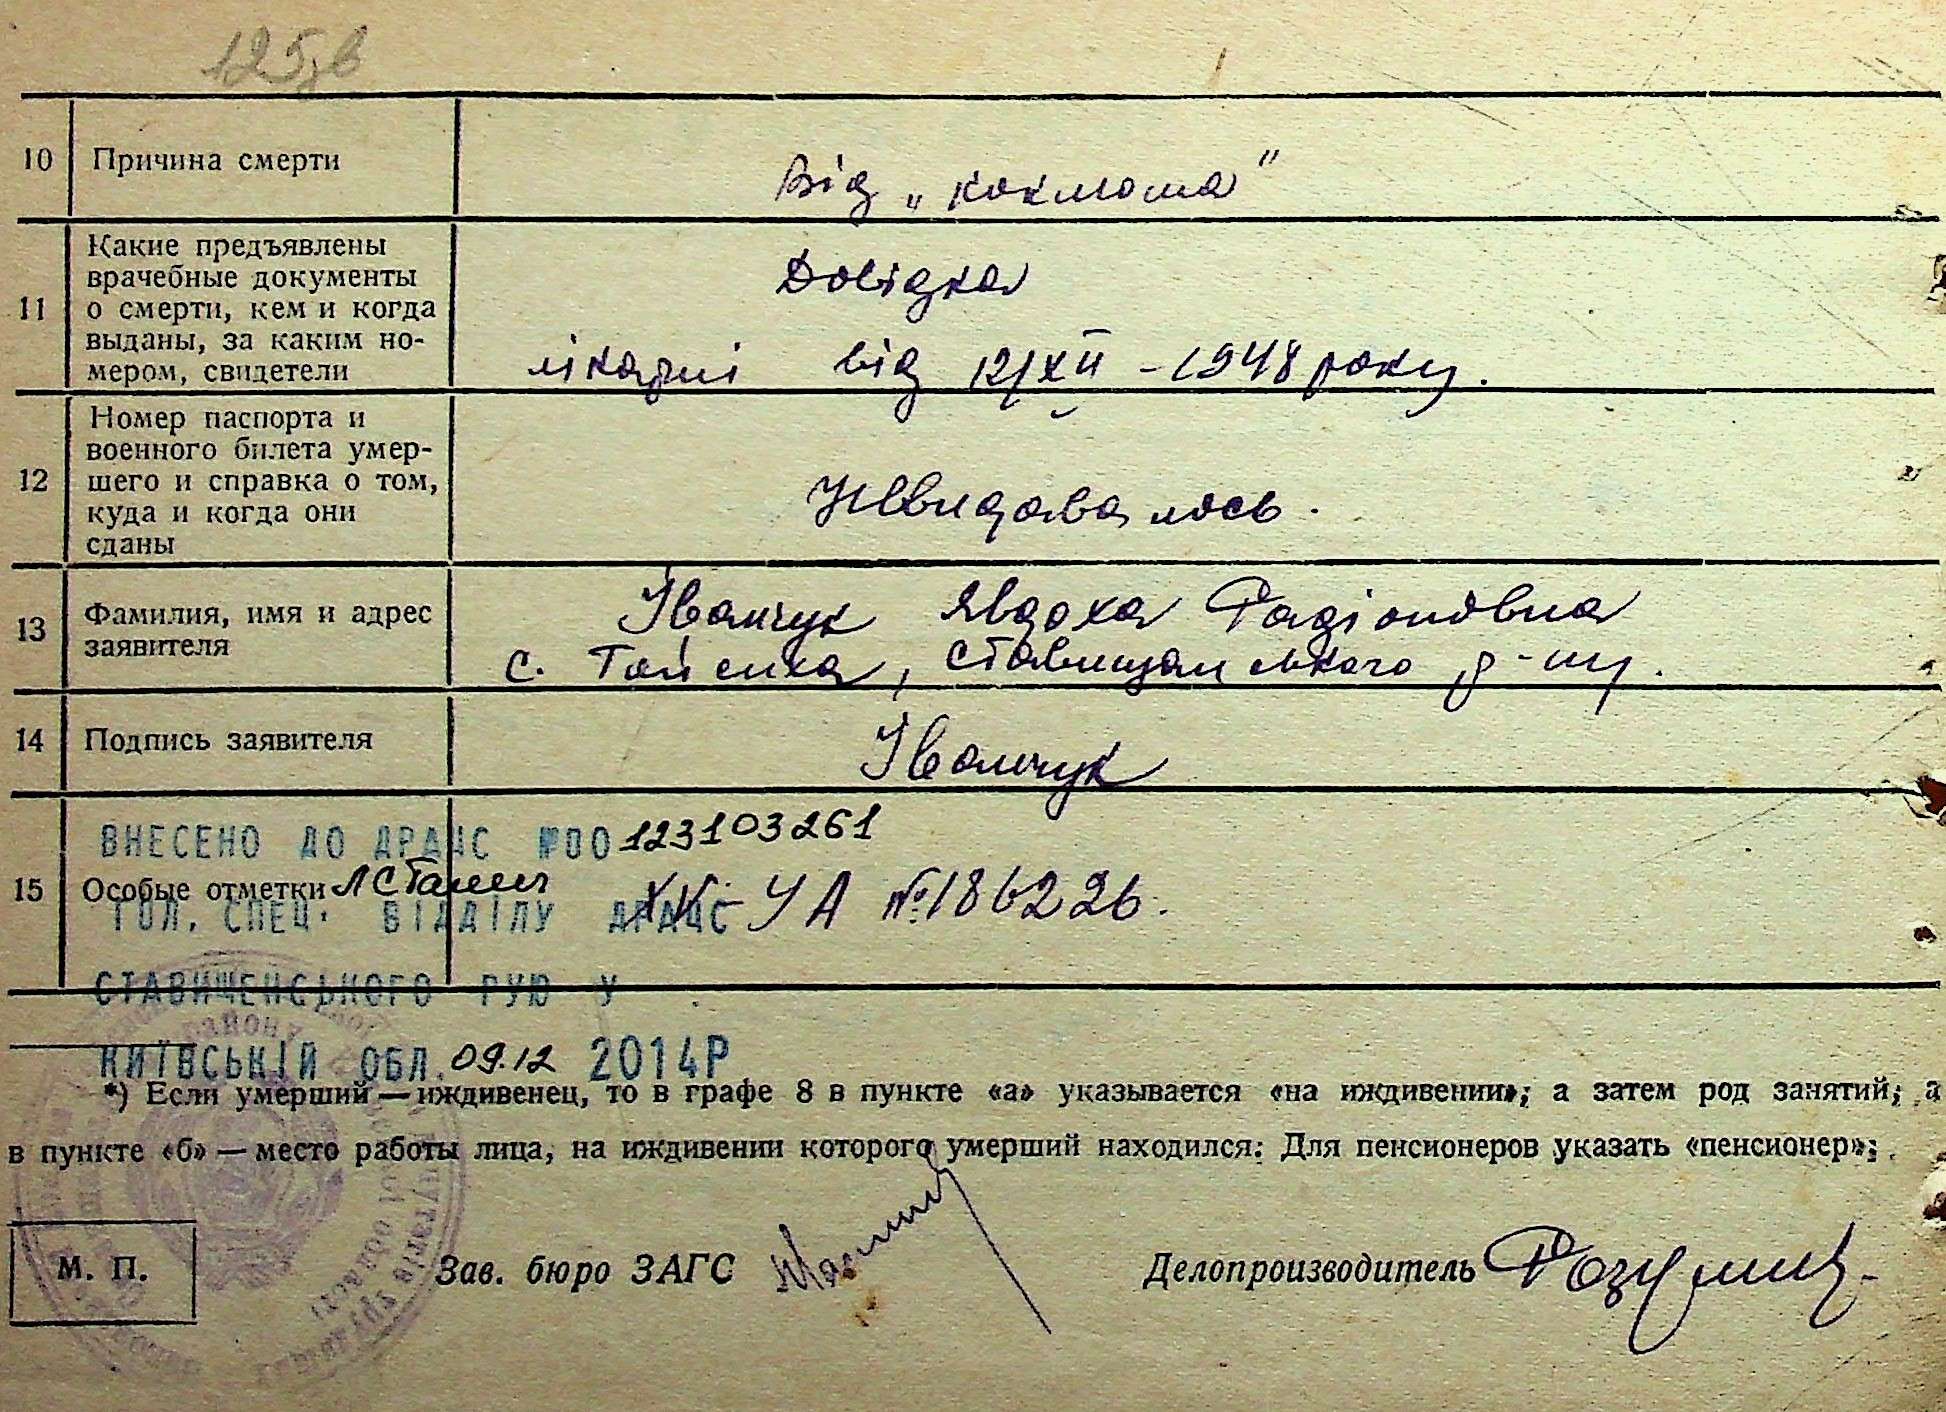 125зв
10 Причина смерти Від „коклюша"
11 Какие предъявлены
врачебные документы
о смерти, кем и когда
выданы, за каким но-
мером, свидетели
Довідка
лікарні від 12/XII - 1948 року.
12 Номер паспорта и
военного билета умер-
шего и справка о том,
куда и когда они
сданы
Невидавалось.
13 Фамилия, имя и адрес
заявителя
Іванчук Явдоха Радіоновна
с. Гайсиха, Ставищанського р-ну.
14 Подпись заявителя Іванчук
ВНЕСЕНО ДО ДРАЦС №00123103261
15 Особые отметки
УА №186226.
ГОЛ. СПЕЦ. ВІДДІЛУ ДРАЦС
СТАВИЩЕНСЬКОГО РУЮ У
КИЇВСЬКІЙ ОБЛ. 09.12 2014Р
*) Если умерший — иждивенец, то в графе 8 в пункте «а» указывается «на иждивении»; а затем род занятий; а
в пункте «б» — место работы лица, на иждивении которого умерший находился: Для пенсионеров указать «пенсионер»;
М. П. Зав. бюро ЗАГС Делопроизводитель